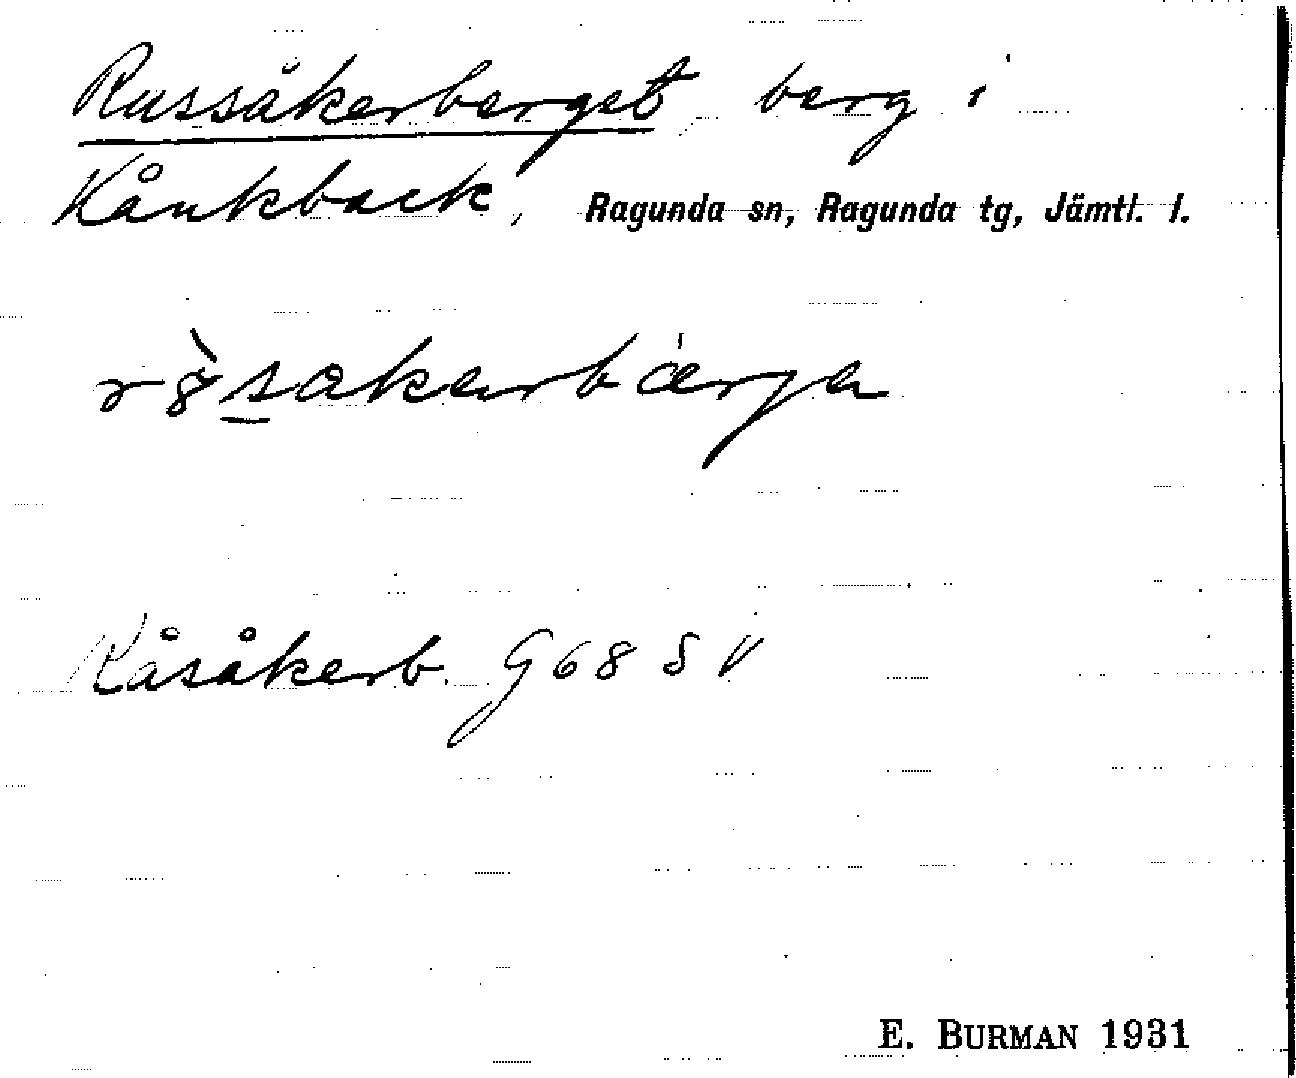 Russåkerberget berg i
Kånkback, Ragunda sn, Ragunda tg, Jämtl. l.
Råsåkerb. G 68 S V
E. BURMAN 1931